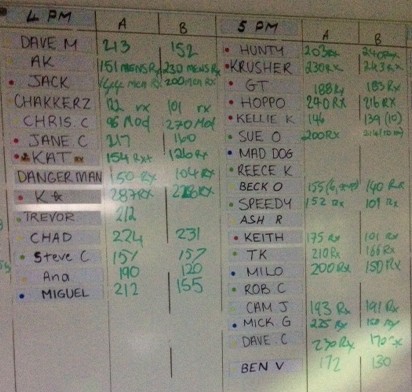 4 PM A B
DAVE M 213 152
AK 151 MENS Rx 230 MENS Rx
JACK 200 Men Rx
CHAKKERZ 82 rx 101 rx
CHRIS. C 96 Mod 270 Mod
JANE C 217 160
KAT 154 Rx 126 Rx
DANGERMAN 150 Rx 104 Rx
K 287 Rx
TREVOR 212
CHAD 224 231
Steve C 157 157
Ana 190 120
MIGUEL 212 155
5 PM A B
HUNTY 203 Rx 240 Rx
KRUSHER 230 Rx 243 Rx
GT 188 Rx 185 Rx
HOPPO 240 Rx 216 Rx
KELLIE K 146 139 (10)
SUE O 200 Rx
MAD DOG
REECE K
BECK O 140 Rx
SPEEDY 152 Rx 101 Rx
ASH R
KEITH 175 Rx 101 Rx
TK 210 Rx 166 Rx
MILO 200 Rx 150 Rx
ROB C
CAM J 193 Rx 191 Rx
MICK. G 225 Rx
DAVE. C 230 Rx 170 Rx
BEN V 172 130